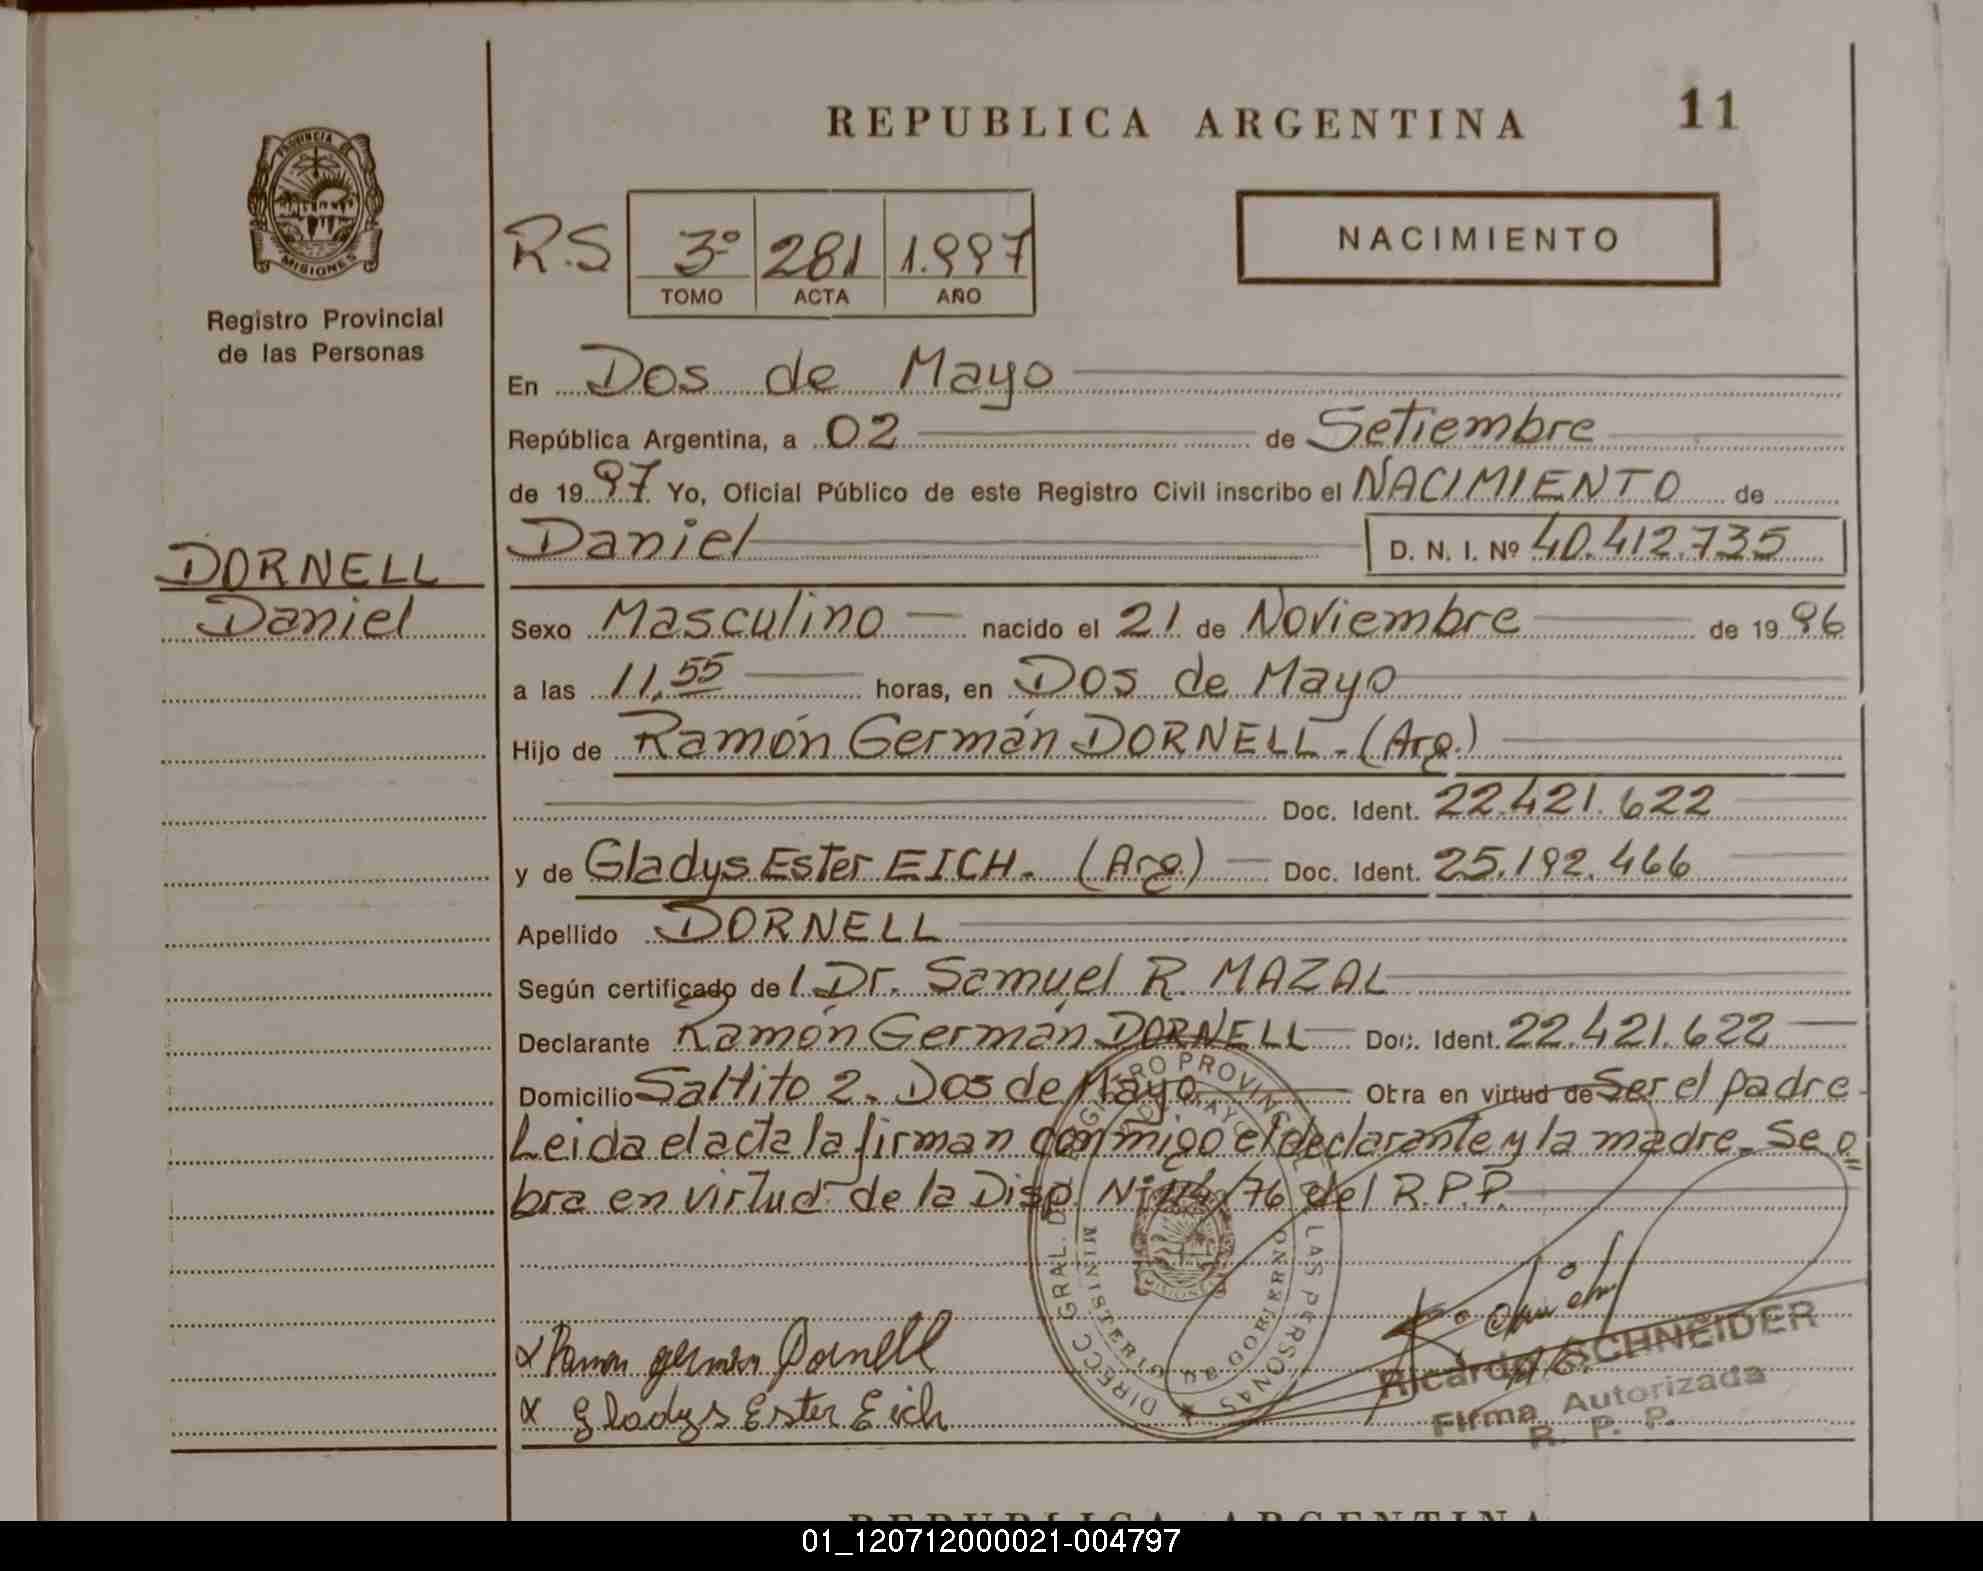 REPUBLICA ARGENTINA
11
PROVINCIA DE
MISIONES
Registro Provincial
de las Personas
R.S
3º 281 1.997
TOMO ACTA AÑO
NACIMIENTO
En Dos de Mayo
República Argentina, a 02 de Setiembre
de 1997 Yo, Oficial Público de este Registro Civil inscribo el NACIMIENTO de
Daniel D. N. I. Nº 40.412.735
DORNELL
Daniel
Sexo Masculino nacido el 21 de Noviembre de 1996
a las 11,55 horas, en Dos de Mayo
Hijo de Ramón Germán DORNELL.-(Arg.)
Doc. Ident. 22.421.622
y de Gladys Ester EICH. (Arg.) Doc. Ident. 25.192.466
Apellido DORNELL
Según certificado de l Dr. Samuel R. MAZAL
Declarante Ramón Germán DORNELL Doc. Ident. 22.421.622
Domicilio Saltito 2. Dos de Mayo Obra en virtud de Ser el padre
Leida el acta la firman conmigo el declarante y la madre. Se o
bra en virtud de la Disp. Nº 114/76 del R.P.P.
DIRECC. GRAL. DEL REGISTRO PROVINCIAL DE LAS PERSONAS
MINISTERIO DE GOBIERNO
MISIONES
x Ramon german Dornell
x Gladys Ester Eich
Ricardo SCHNEIDER
Firma Autorizada
R. P. P.
REPUBLICA ARGENTINA
01_120712000021-004797